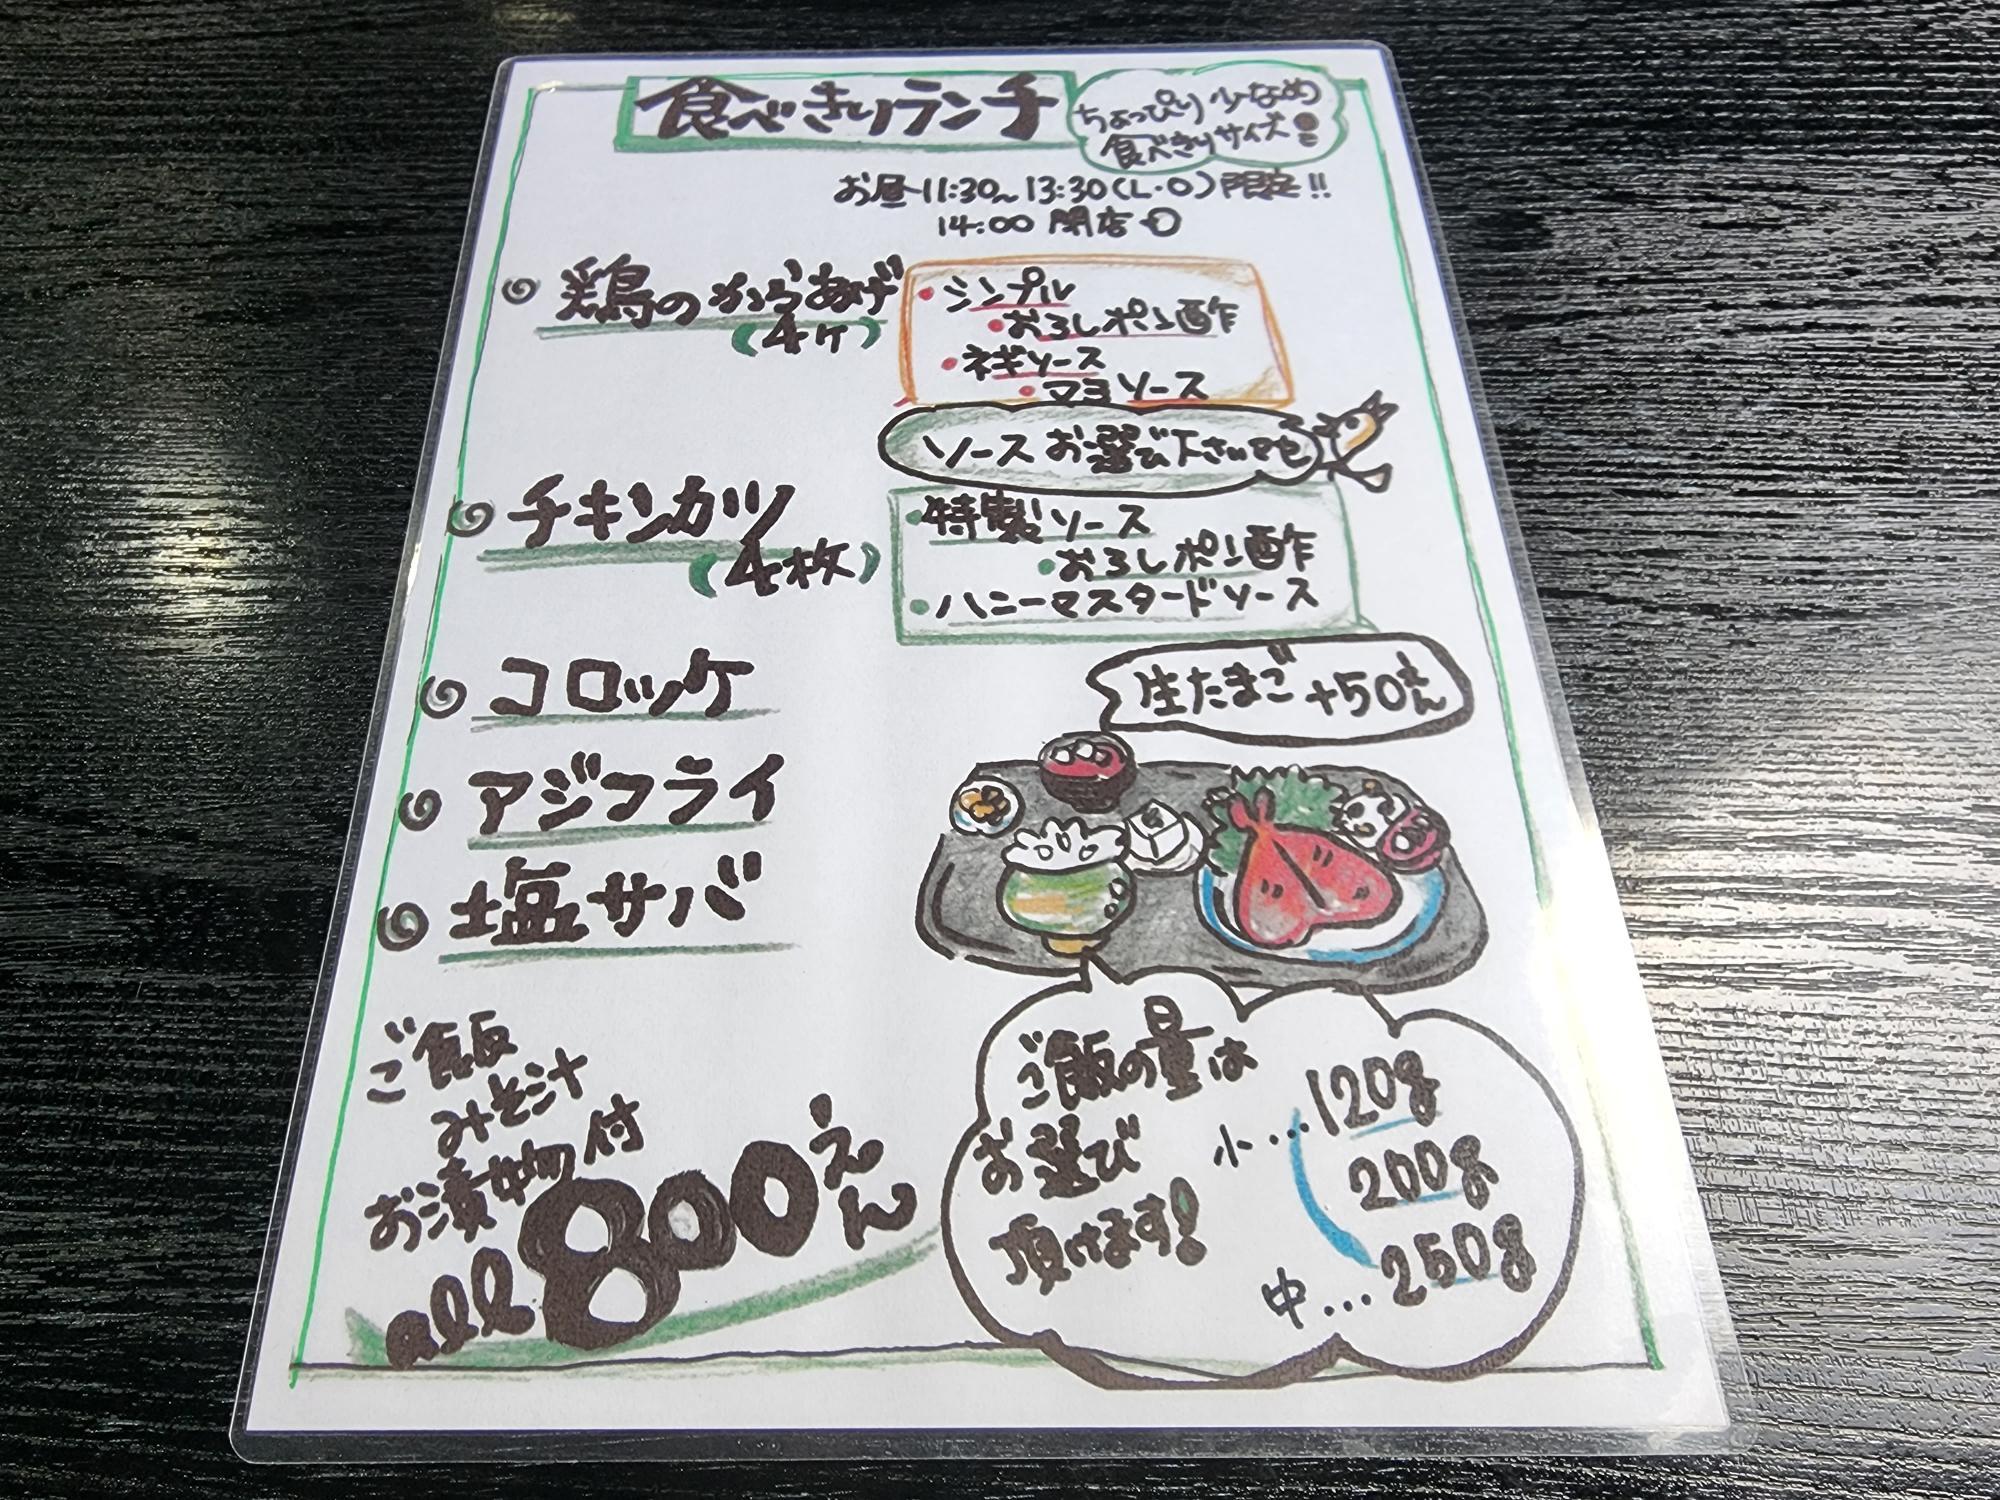 食べきりランチ
ちょっぴり少なめ
食べきりサイズ!
お昼11:30~13:30(L・O)限定!!
14:00 閉店
鶏のからあげ
(4ケ)
・シンプル
・おろしポン酢
・ネギソース
・マヨソース
ソースお選び下さいませ
チキンカツ
(4枚)
・特製ソース
・おろしポン酢
・ハニーマスタードソース
コロッケ
アジフライ
塩サバ
生たまご+50えん
ご飯
みそ汁
お漬物付
all 800えん
ご飯の量は
お選び
頂けます!
小…120g
200g
中…250g